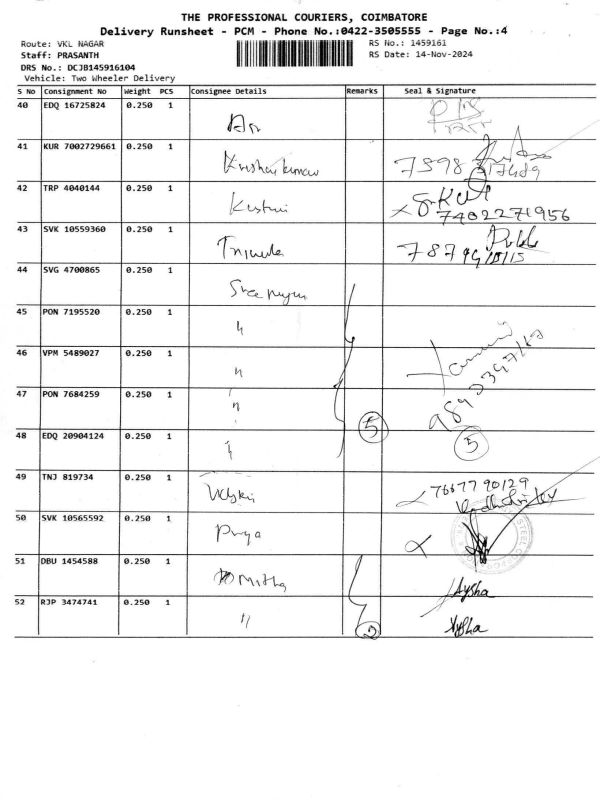 THE PROFESSIONAL COURIERS, COIMBATORE
Delivery Runsheet - PCM - Phone No.:0422-3505555 - Page No.:4
Route: VKL NAGAR RS No.: 1459161
Staff: PRASANTH RS Date: 14-Nov-2024
DRS No.: DCJB145916104
Vehicle: Two Wheeler Delivery
S No Consignment No Weight PCS Consignee Details Remarks Seal & Signature
40 EDQ 16725824 0.250 1
41 KUR 7002729661 0.250 1
42 TRP 4040144 0.250 1
7402271956
43 SVK 10559360 0.250 1
44 SVG 4700865 0.250 1
45 PON 7195520 0.250 1 "
46 VPM 5489027 0.250 1 "
47 PON 7684259 0.250 1 "
5
48 EDQ 20904124 0.250 1 "
5
49 TNJ 819734 0.250 1
7667790129
50 SVK 10565592 0.250 1 Priya
51 DBU 1454588 0.250 1 Mitha
Aysha
52 RJP 3474741 0.250 1 " 2
Aysha